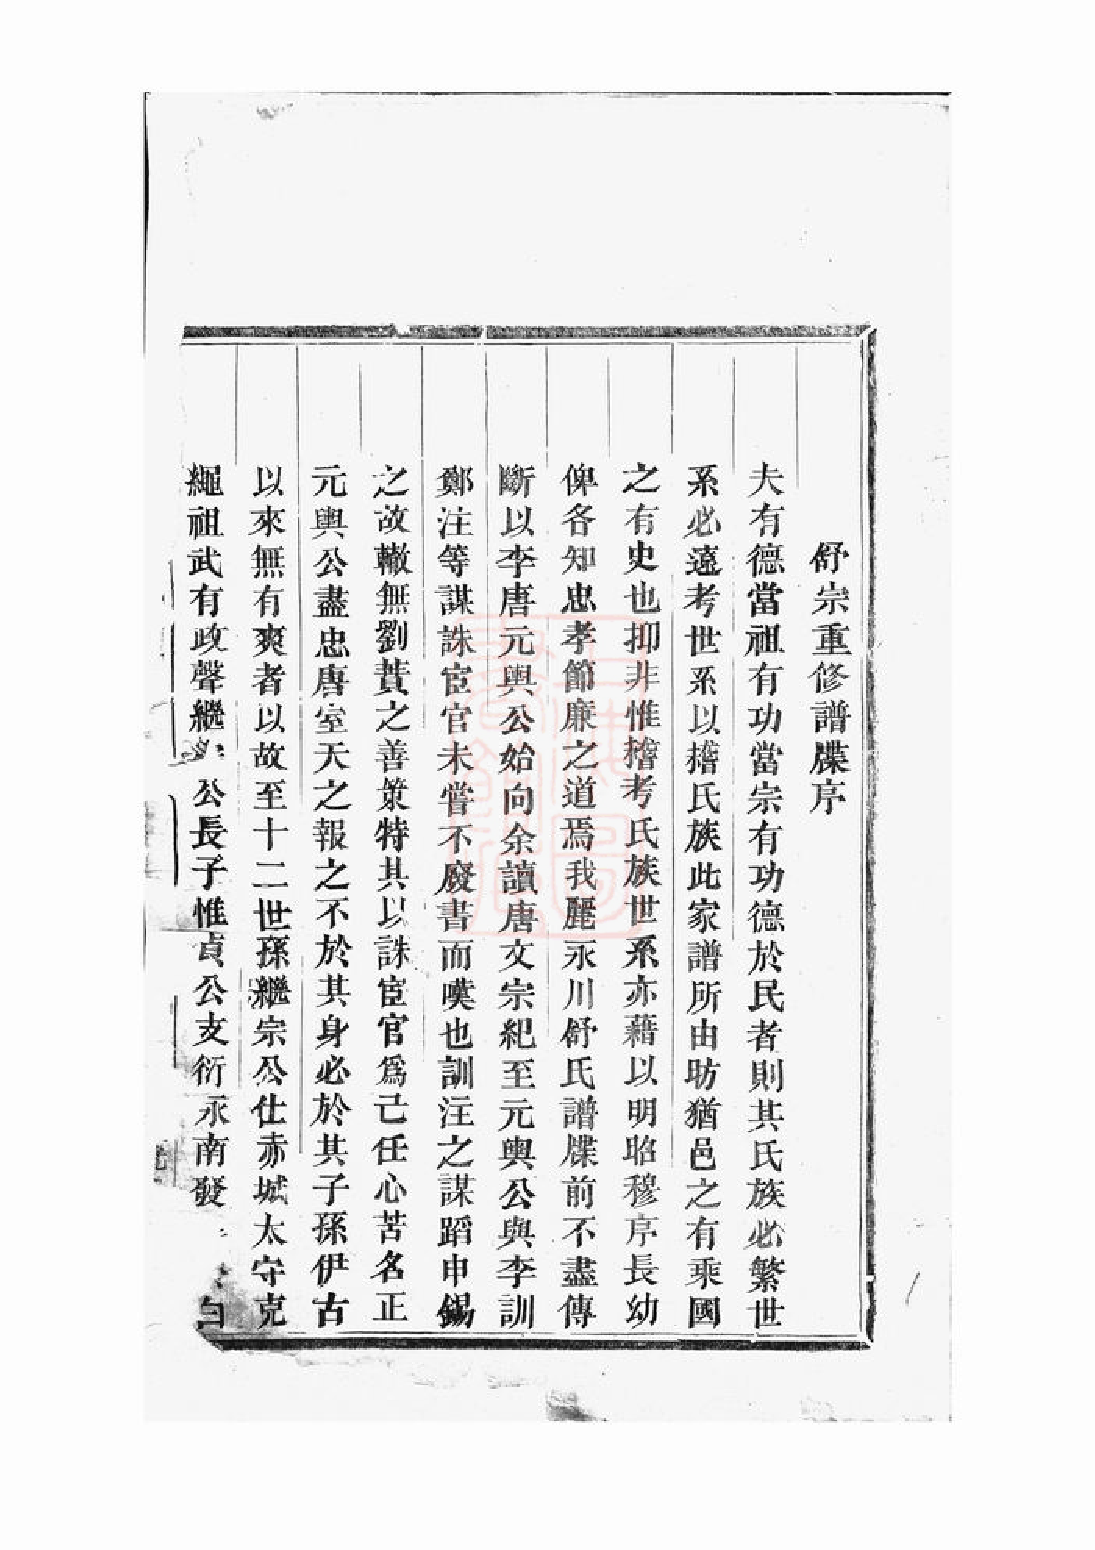 舒宗重修譜牒序
夫有德當祖有功當宗有功德於民者則其氏族必繁世
系必遠考世系以揝氏族此家譜所由昉猶邑之有乘國
之有史也抑非惟揝考氏族世系亦藉以明昭穆序長幼
俾各知忠孝節廉之道焉我麗永川舒氏譜牒前不盡傳
斷以李唐元輿公始向余讀唐文宗紀至元輿公與李訓
鄭注等謀誅宦官未嘗不廢書而嘆也訓注之謀蹈申錫
之故轍無劉蕡之善策特其以誅宦官爲己任心苦名正
元輿公盡忠唐室天之報之不於其身必於其子孫伊古
以來無有爽者以故至十二世孫繼宗公仕赤城太守克
繩祖武有政聲繼 公長子惟貞公支衍永南發